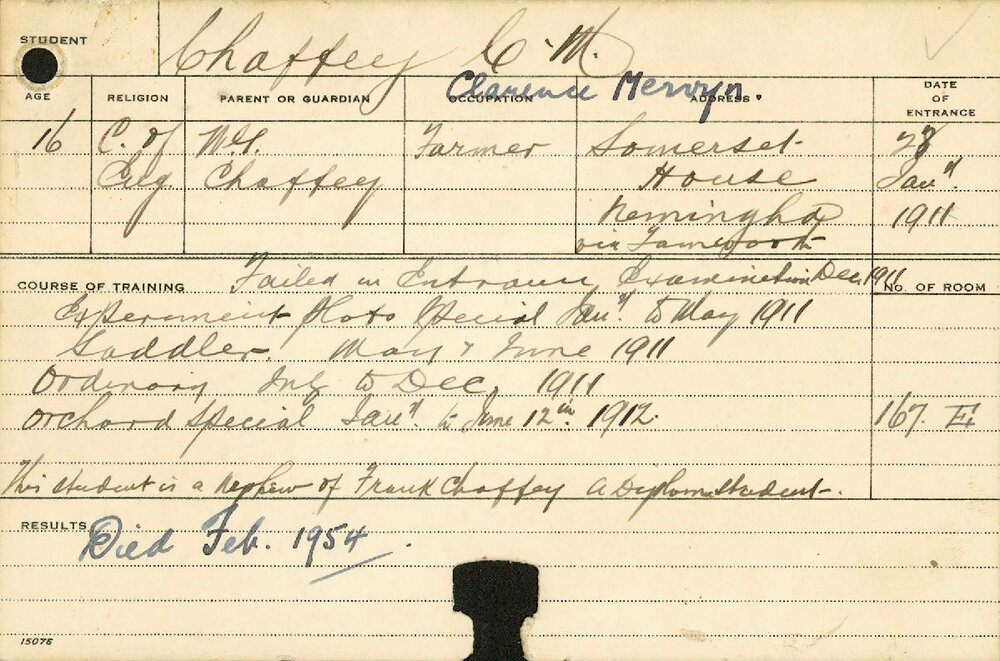 STUDENT
Chaffey C. M.
Clarence Mervyn
AGE RELIGION PARENT OR GUARDIAN OCCUPATION ADDRESS DATE OF ENTRANCE
16 C. of W.G. Farmer Somerset 28
Eng. Chaffey House Jany.
Nemingha 1911
via Tamworth
COURSE OF TRAINING Failed in Entrance Examination Dec. 1911
No. OF ROOM
Experiment Plots Special Jany. to May 1911
Saddler. May & June 1911
Ordinary July to Dec. 1911
Orchard Special Jany. to June 12th. 1912. 167. E1
This student is a nephew of Frank Chaffey a Diploma Student.
RESULTS
Died Feb. 1954.
15076